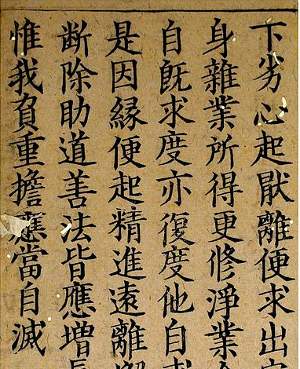 下劣心起厭離便求出
身雜業所得更修淨業
自既求度亦復度他自
是因緣便起精進遠離
断除助道善法皆應増
惟我負重擔應當自滅